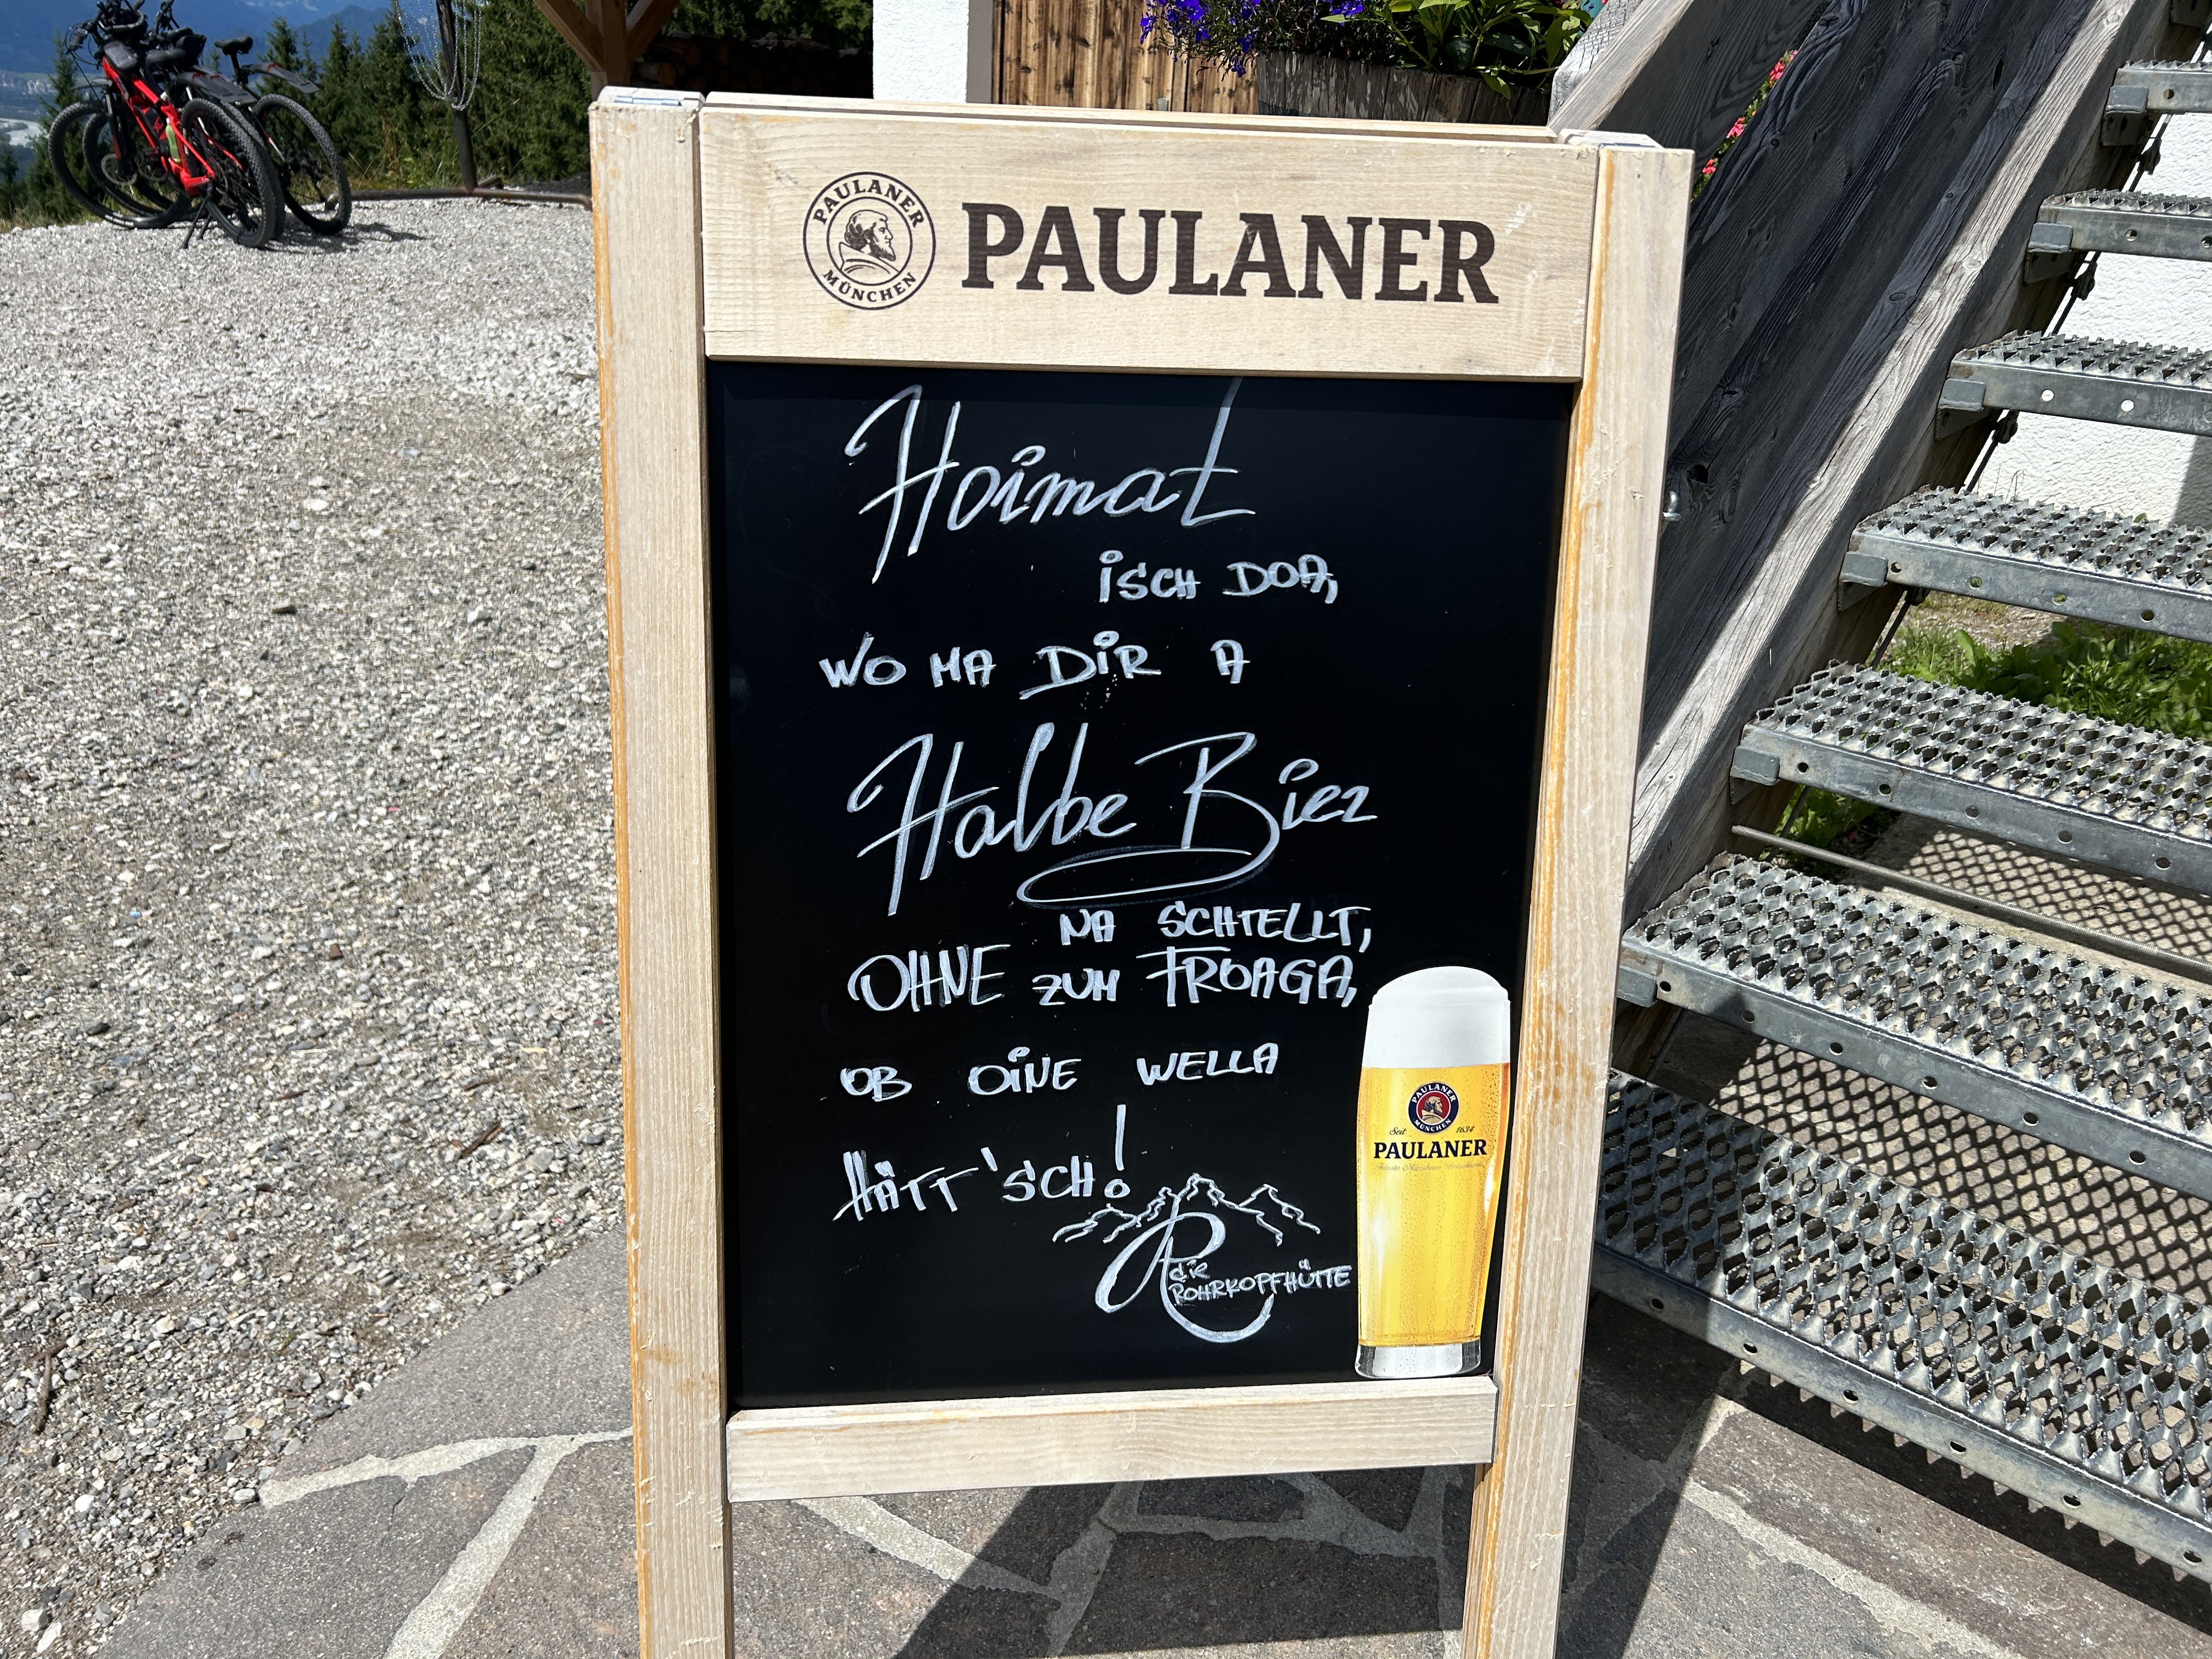 PAULANER
MÜNCHEN
PAULANER
Hoimat
isch DOA,
WO MA DiR A
Halbe Bier
NA SCHTELLT,
OHNE ZUM FROAGA,
OB OINE WELLA
HÄTT'SCH!
die
ROHRKOPFHÜTTE
PAULANER
MÜNCHEN
Seit 1634
PAULANER